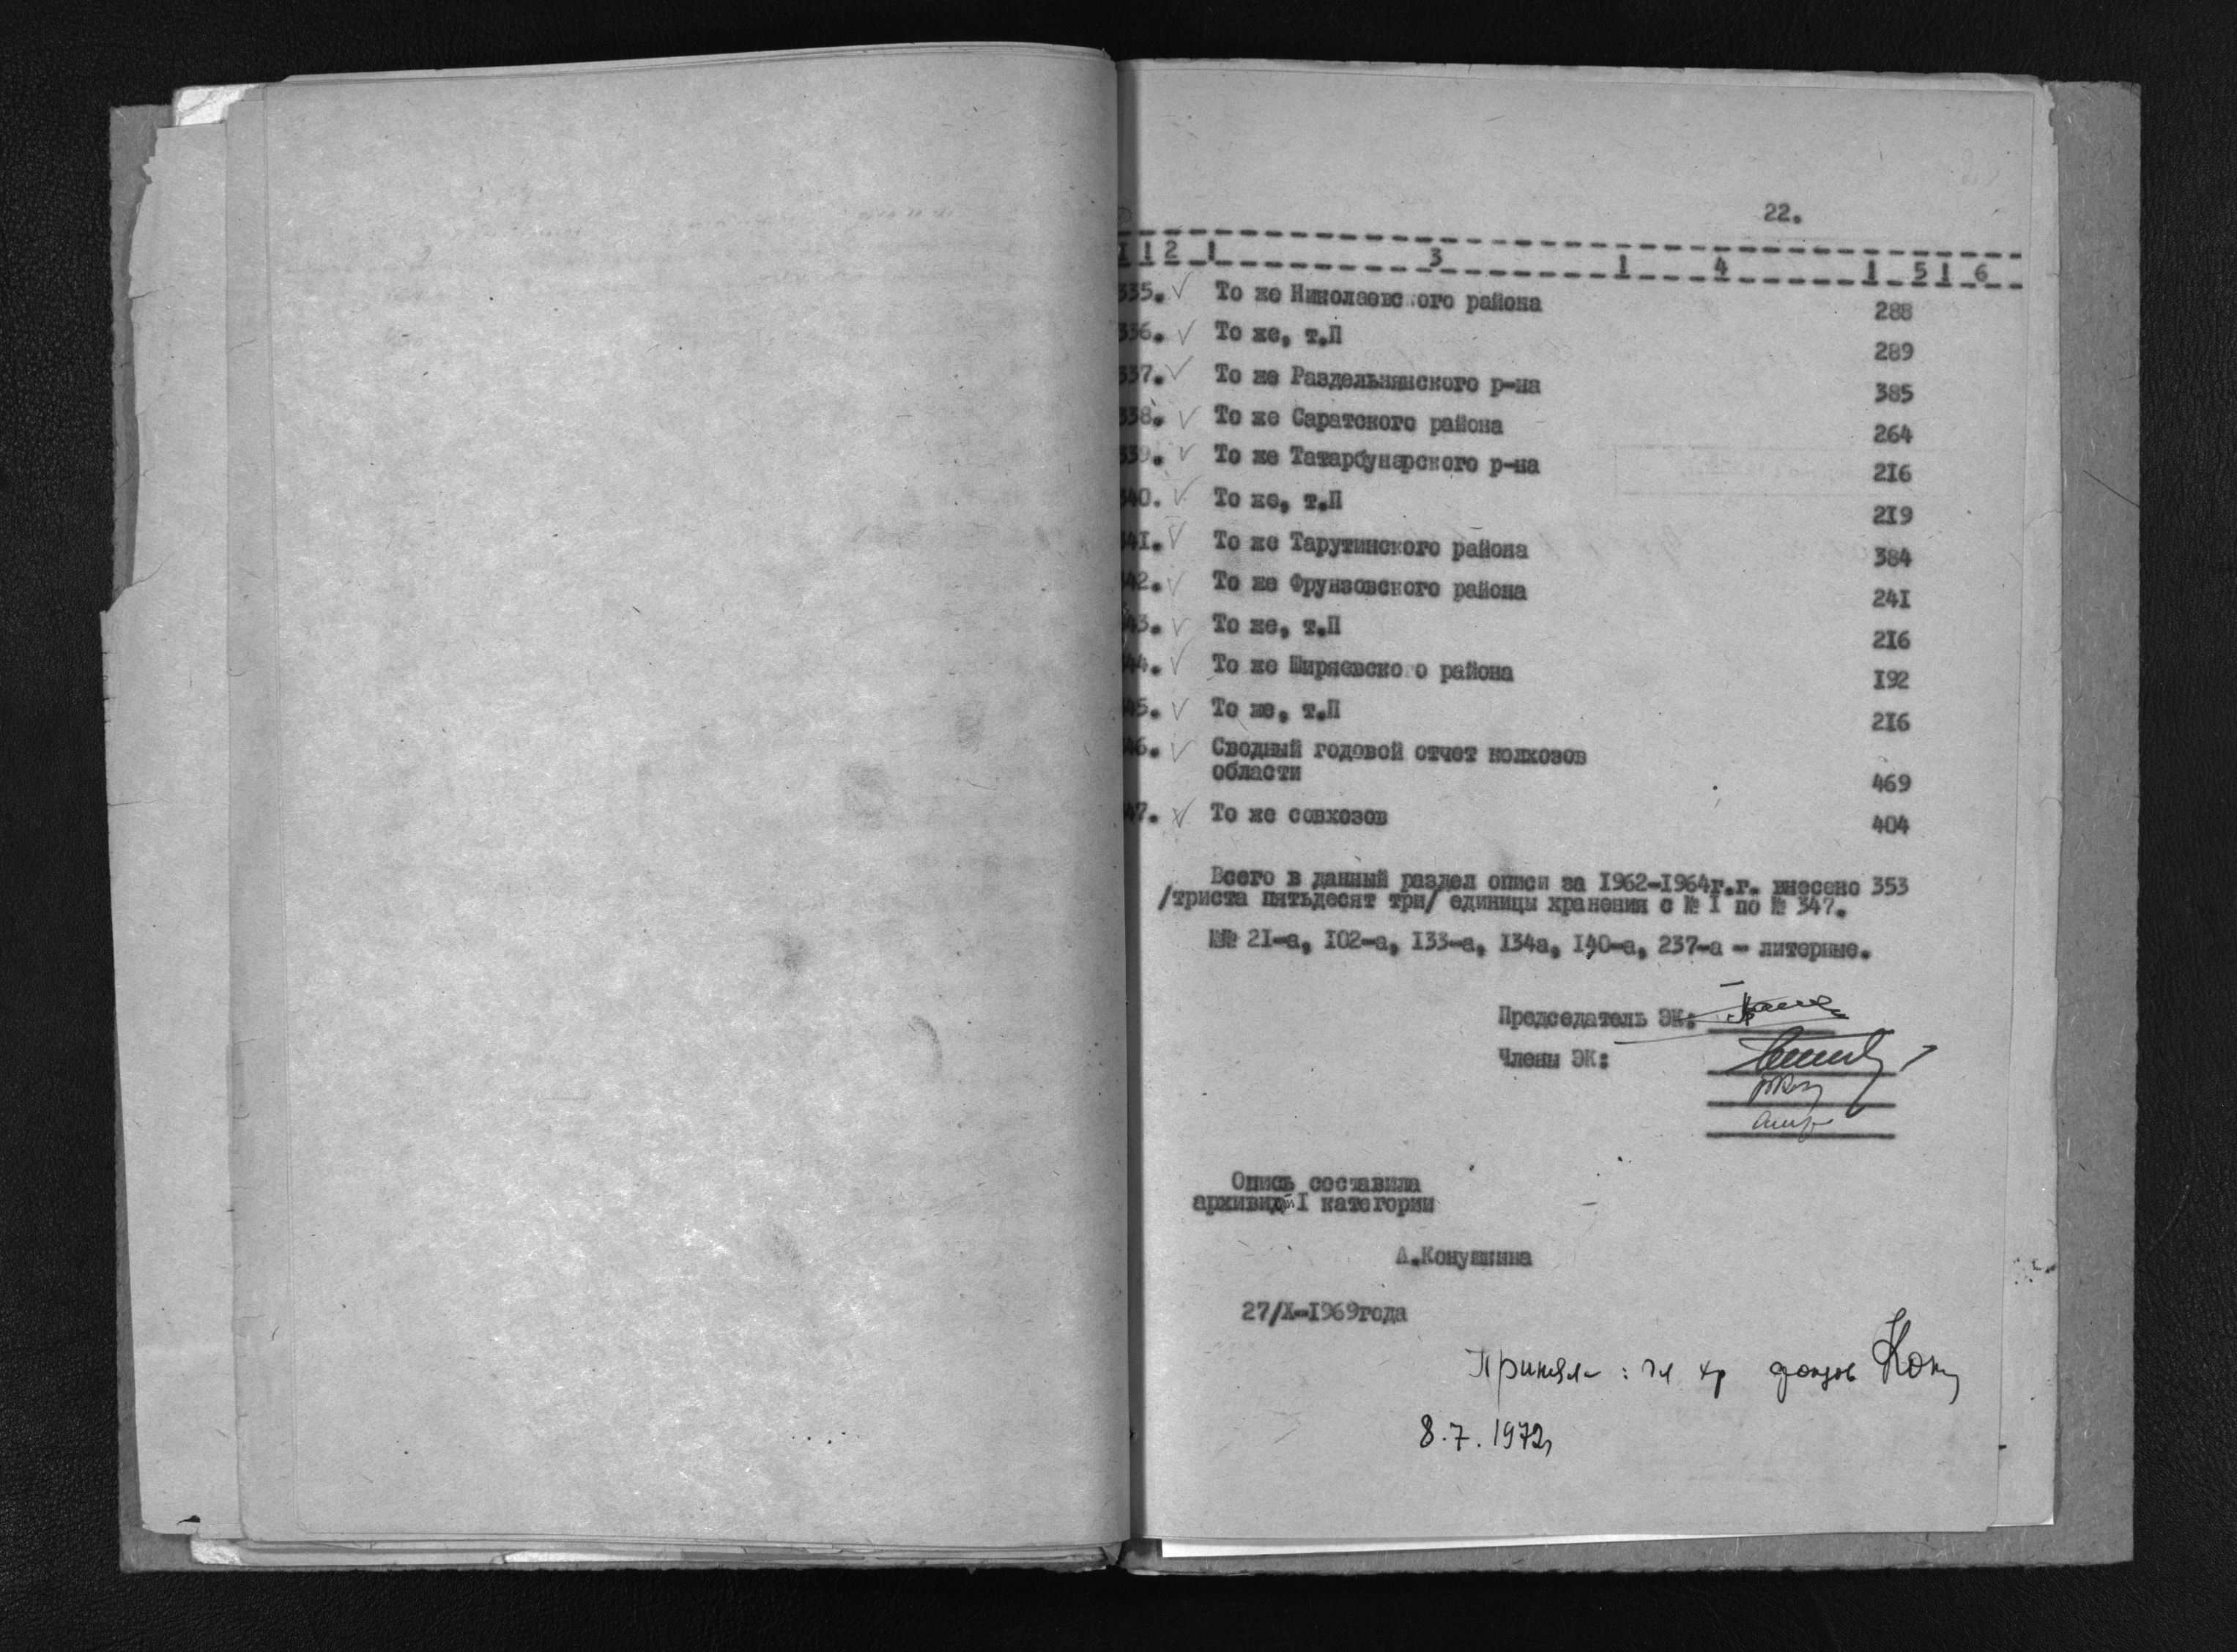 22.
I 2 3 4 5 6
335. ✓ То же Николаевс ого района 288
336. ✓ То же, т.П 289
337. ✓ То же Раздельнянского р-на 385
338. ✓ То же Саратского района 264
339. ✓ То же Татарбунарского р-на 216
340. ✓ То же, т.П 219
341. ✓ То же Тарутинского района 384
342. ✓ То же Фрунзовского района 241
43. ✓ То же, т.П 216
44. ✓ То же Ширяевско о района 192
45. ✓ То же, т.П 216
46. ✓ Сводный годовой отчет колхозов
области 469
47. ✓ То же совхозов 404
Всего в данный раздел описи за 1962-1964г.г. внесено 353
/триста пятьдесят три/ единицы хранения с № I по № 347.
№№ 21-а, 102-а, 133-а, 134а, 140-а, 237-а - литерные.
Председатель ЭК:
Члены ЭК:
Опись составила
архивист I категории
А.Конушкина
27/X-1969года
Приняла: гл хр фондов
8.7.1972г